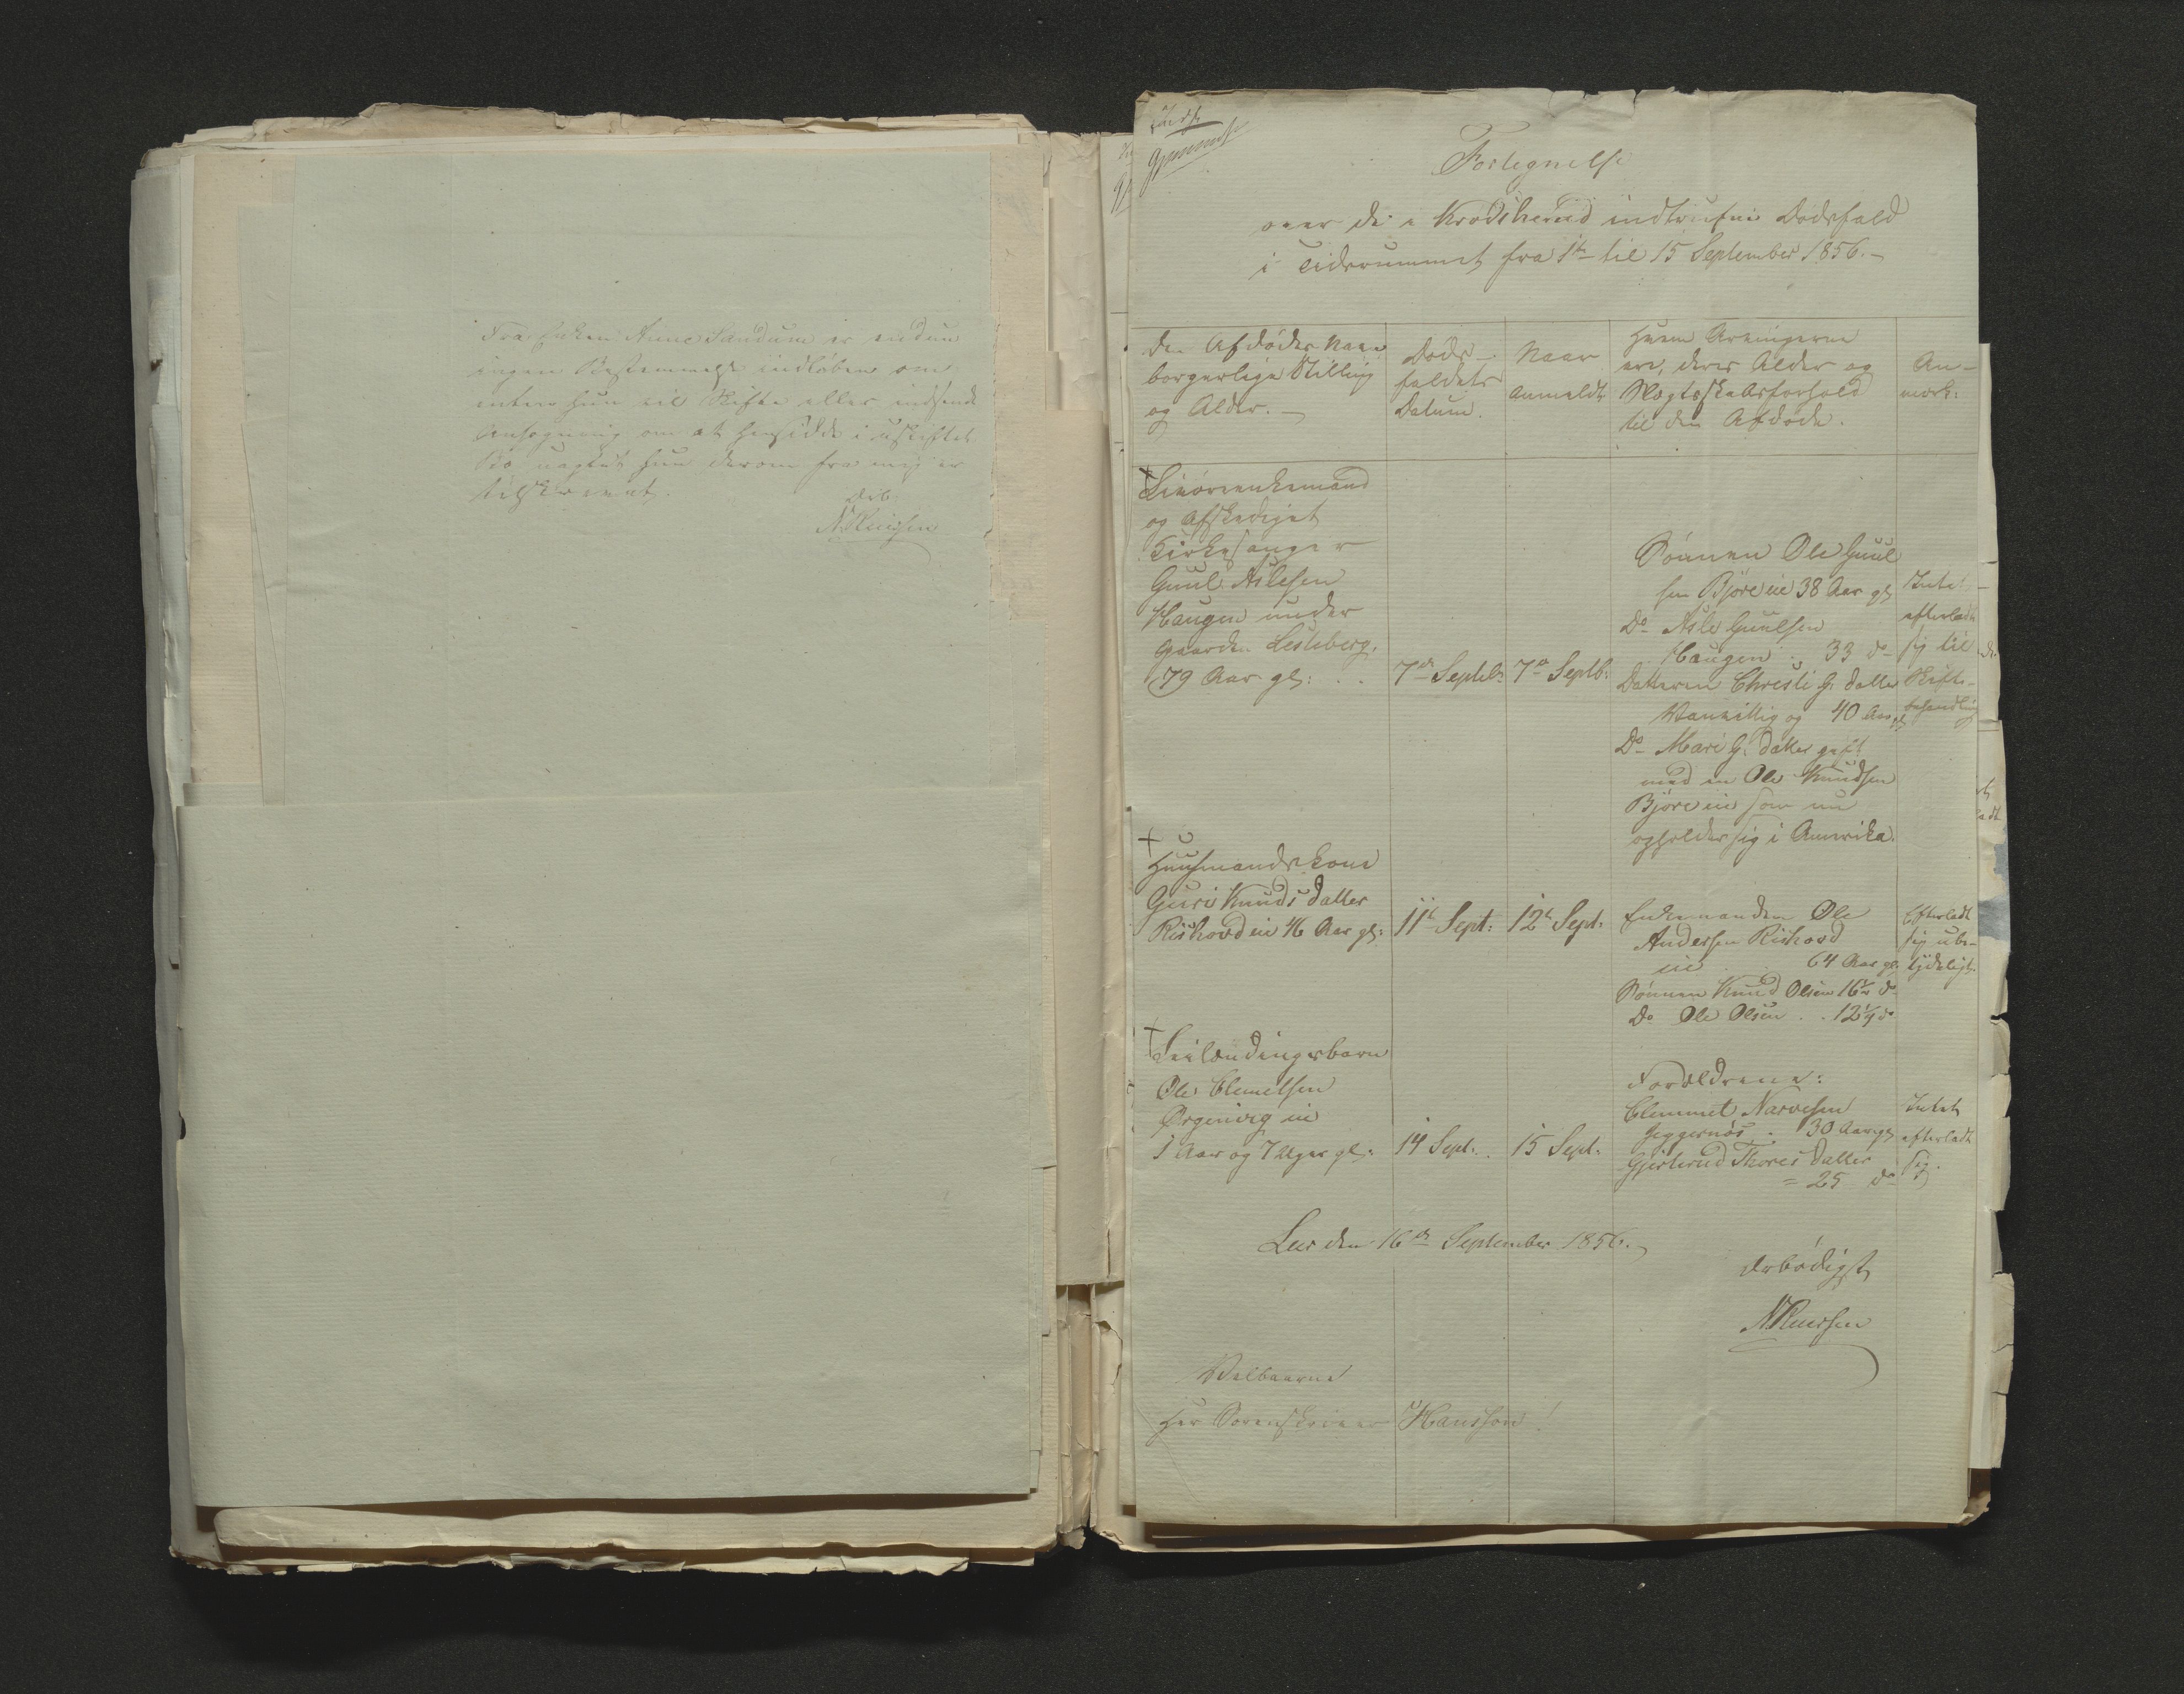 Fra Enken Anne Sandum er endnu
ingen Bestemmelse indløben om
enten hun vil Skifte eller indsende
Ansøgning om at hensidde i uskiftet
Bo uagtet hun derom fra mig er
tilskrevet.
N. Ruissen
Fortegnelse
over de i Krødsherred indtrufne Dødsfald
i Tidsrummet fra 1te til 15 September 1856.-
Den Afdødes Navn
borgerlige Stilling
og Alder. -
Døds-
faldets
Datum.
Naar
anmeldt
Hvem Arvingerne
ere, deres Alder og
Slægtskabsforhold
til den Afdøde.
An-
mærk:
og Afskediget
Kirkesanger
Guul Aslesen
Haugen under
Gaarden Lesteberg.
79 Aar gl: . .
7de Septeb:
7de Septb:
Sønnen Ole Guul
sen Bjøre eie 38 Aar gl
Do Asle Guulsen
Haugen . 33 do
Datteren Christi G. datter
Vanvittig og 40 Aar gl
Do Mari G. datter gift
med en Ole Knudsen
Bjøre eie som nu
opholder sig i Amerika.
Intet
efterladt
sig til
Skifte-
behandling
+
Huusmandskone
Guri Knudsdatter
Riishovd eie 46 Aar gl:
11te Sept:
12te Sept:
Enkemanden Ole
Andersen Riishovd
eie 64 Aar gl.
Sønnen Knud Olsen 16½ do
Do Ole Olsen . . 12¼ do
Efterladt
sig ube-
tydeligt.
+ Inderstbarn
Ole Clemetsen
Ørgenvig eie
1 Aar og 7 Uger gl:
14 Sept:
15 Sept:
Forældrene:
Clemmet Narvesen
Gjeggernøs . 30 Aar gl
Gjertrud Thores datter
= 25 do
Intet
efterladt
sig.
Leer den 16de September 1856.
Ærbødigst
N. Ruissen
Velbaarne
Herr Sorenskriver Hansson!